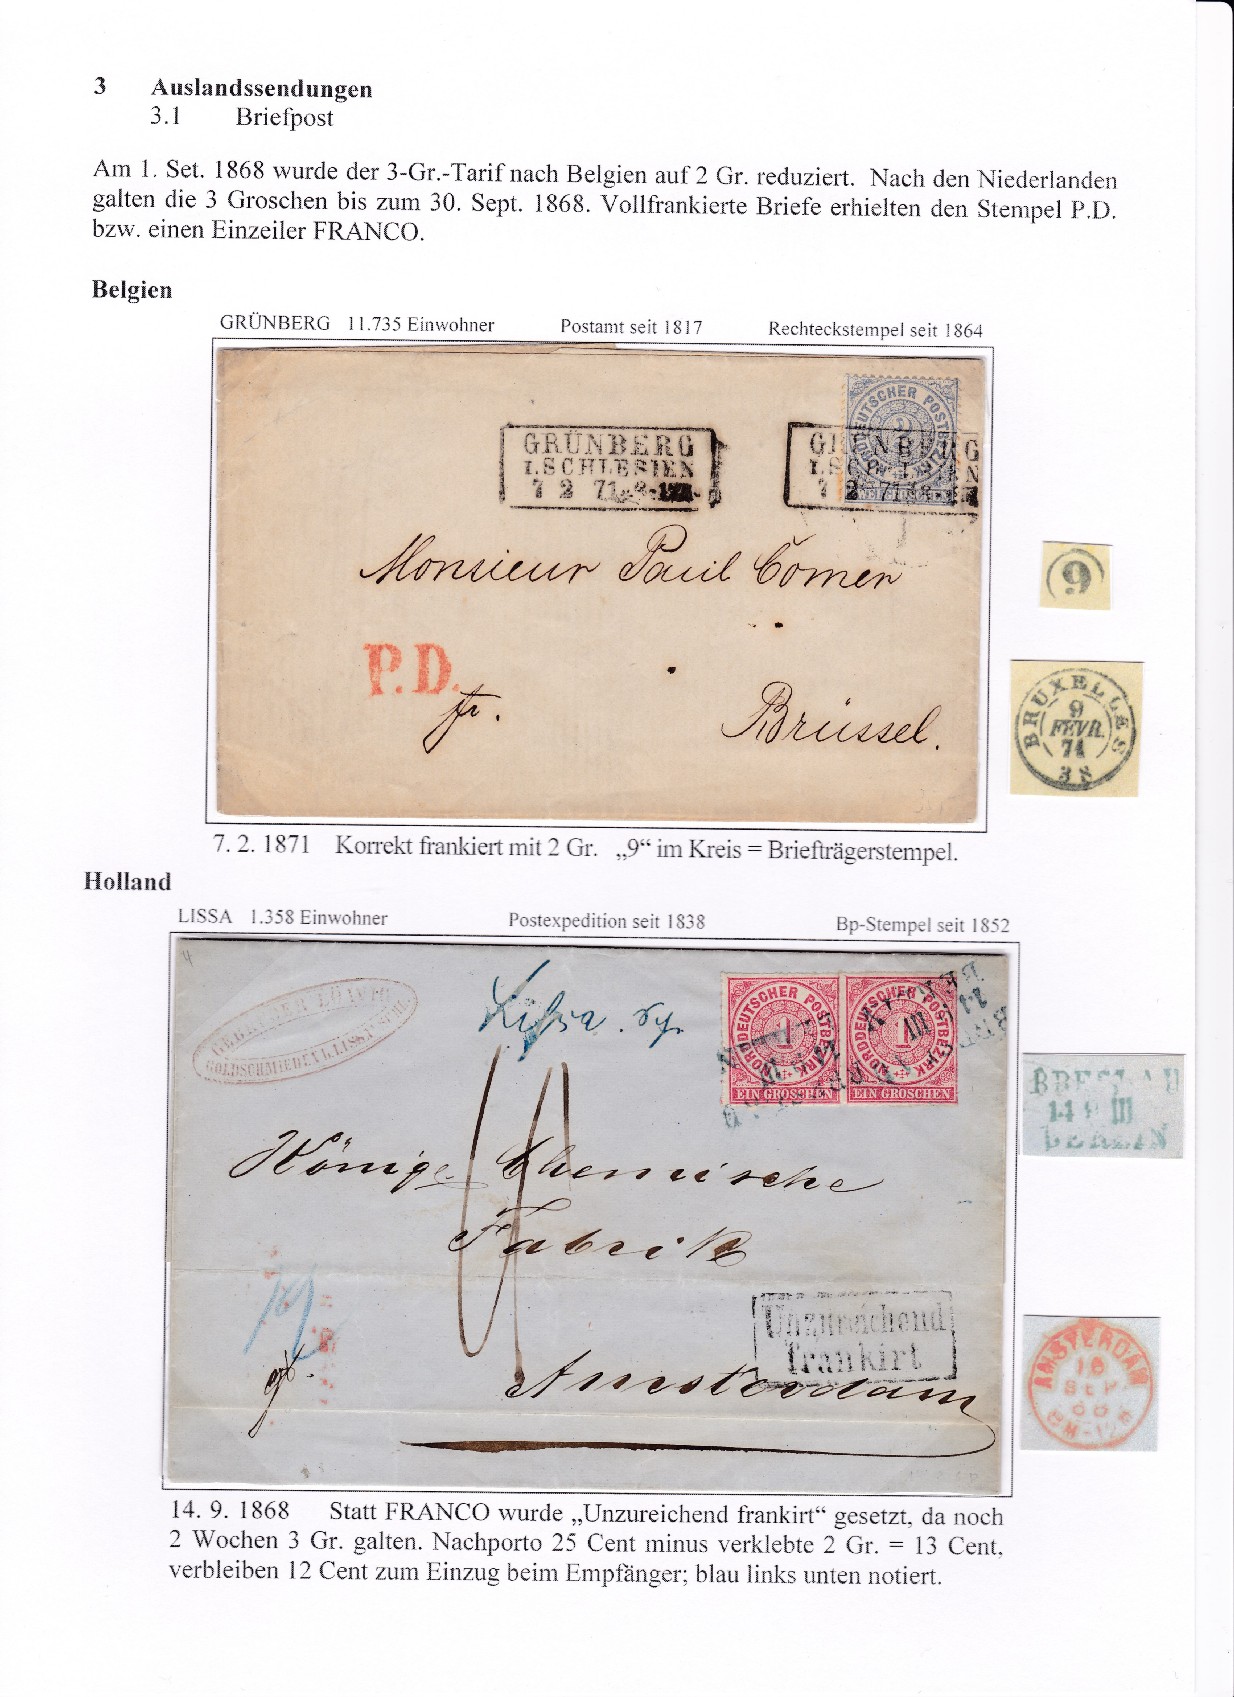 3 Auslandssendungen
3.1 Briefpost
Am 1. Set. 1868 wurde der 3-Gr.-Tarif nach Belgien auf 2 Gr. reduziert. Nach den Niederlanden
galten die 3 Groschen bis zum 30. Sept. 1868. Vollfrankierte Briefe erhielten den Stempel P.D.
bzw. einen Einzeiler FRANCO.
Belgien
GRÜNBERG 11.735 Einwohner Postamt seit 1817 Rechteckstempel seit 1864
NORDDEUTSCHER POSTBEZIRK
GRÜNBERG
I. SCHLESIEN
7 2 71
GRÜNBERG
I. SCHLESIEN
7 2 71
Monsieur Paul Comer
9
P.D.
fr.
Brüssel.
BRUXELLES
9
FEVR.
71
3 S
7. 2. 1871 Korrekt frankiert mit 2 Gr. „9“ im Kreis = Briefträgerstempel.
Holland
LISSA 1.358 Einwohner Postexpedition seit 1838 Bp-Stempel seit 1852
GOLDSCHMIEDEN b. LISSA
Lissa
NORDDEUTSCHER POSTBEZIRK
1
EIN GROSCHEN
NORDDEUTSCHER POSTBEZIRK
1
EIN GROSCHEN
BRESLAU
14 9 III
BERLIN
Chemische
Fabrik
Unzureichend
frankirt
Amsterdam
AMSTERDAM
16
SEP
68
14. 9. 1868 Statt FRANCO wurde „Unzureichend frankirt“ gesetzt, da noch
2 Wochen 3 Gr. galten. Nachporto 25 Cent minus verklebte 2 Gr. = 13 Cent,
verbleiben 12 Cent zum Einzug beim Empfänger; blau links unten notiert.